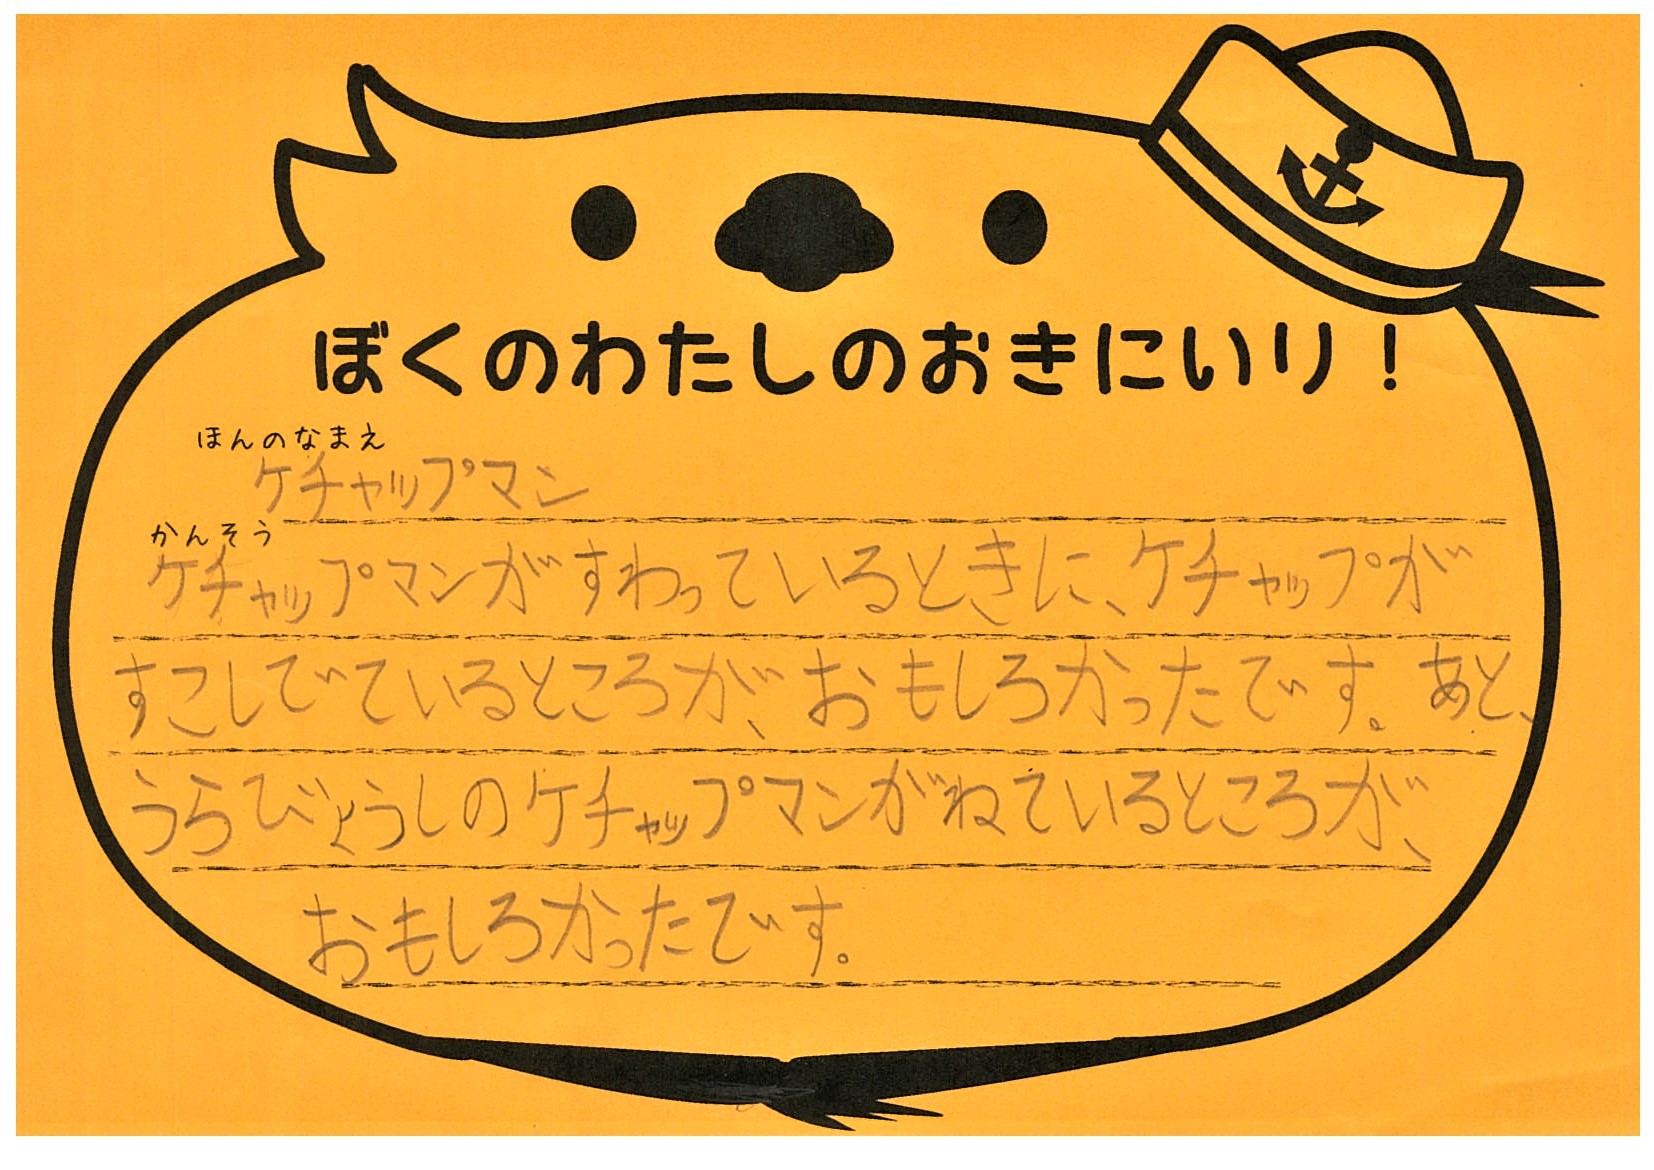 ぼくのわたしのおきにいり！
ほんのなまえ
ケチャップマン
かんそう
ケチャップマンがすわっているときに、ケチャップが
すこしでているところが、おもしろかったです。あと、
うらびょうしのケチャップマンがねているところが、
おもしろかったです。